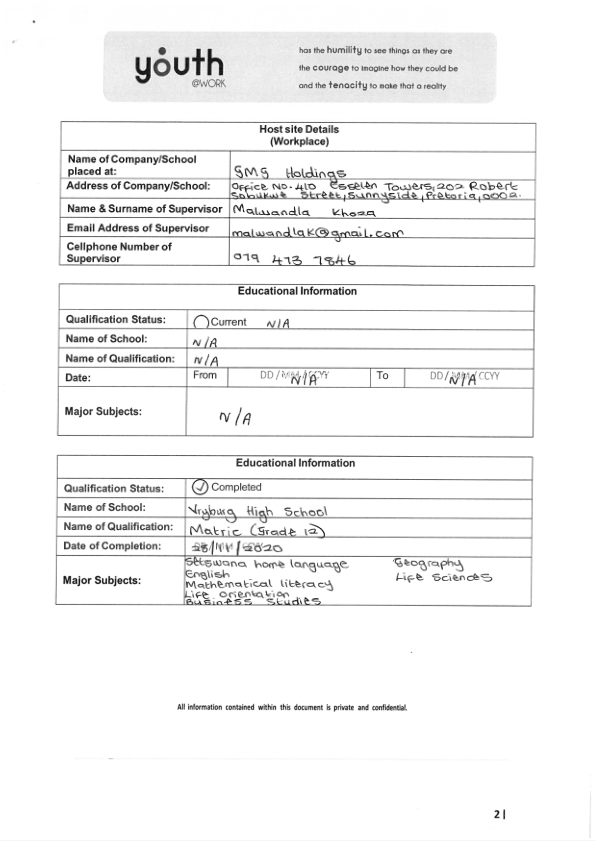 youth
@WORK
has the humility to see things as they are
the courage to imagine how they could be
and the tenacity to make that a reality
Host site Details
(Workplace)
Name of Company/School placed at: GMG Holdings
Address of Company/School: Office No. 410 Esselen Towers, 202 Robert
Sobukwe Street, Sunnyside, Pretoria, 0002.
Name & Surname of Supervisor Malwandla Khoza
Email Address of Supervisor malwandlak@gmail.com
Cellphone Number of Supervisor 079 473 7846
Educational Information
Qualification Status: Current N/A
Name of School: N/A
Name of Qualification: N/A
Date: From DD/MM/CCYY N/A To DD/MM/CCYY N/A
Major Subjects: N/A
Educational Information
Qualification Status: Completed
Name of School: Vryburg High School
Name of Qualification: Matric (Grade 12)
Date of Completion: /2020
Major Subjects:
Setswana home language
English
Mathematical literacy
Life Orientation
Business Studies
Geography
Life Sciences
All information contained within this document is private and confidential.
2|